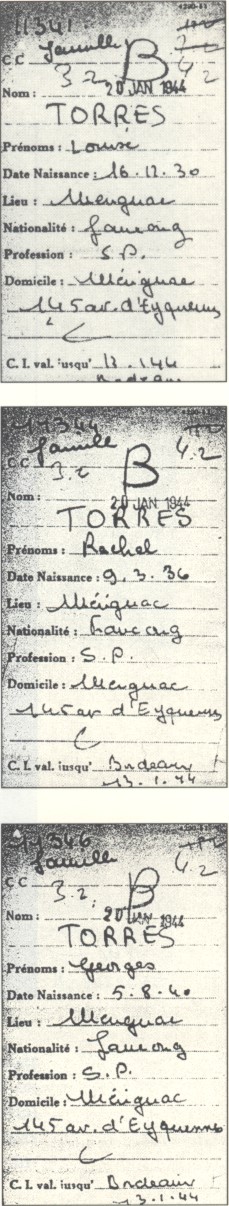 11341
Famille
C C
B
3 2
4 2
Nom : 20 JAN 1944
TORRES
Prénoms : Louise
Date Naissance : 16. 12. 30
Lieu : Merignac
Nationalité :
Profession : S. P.
Domicile : Mérignac
145 av. d'Eyquems
C. I. val. iusqu' 13. 1 44
Bordeaux
Famille
4. 2
C C 3. 2
B
Nom : 20 JAN 1944
TORRES
Prénoms : Rachel
Date Naissance : 9. 3. 36
Lieu : Mérignac
Nationalité :
Profession : S. P.
Domicile : Merignac
145 av d'Eyquems
C. I. val. iusqu' Bordeaux
13. 1. 44
11346
Famille
4. 2
C C 3. 2
B
Nom : 20 JAN 1944
TORRES
Prénoms : Georges
Date Naissance : 5. 8. 40
Lieu : Merignac
Nationalité :
Profession : S. P.
Domicile : Mérignac
145 av. d'Eyquems
C. I. val. iusqu' Bordeaux
13. 1. 44